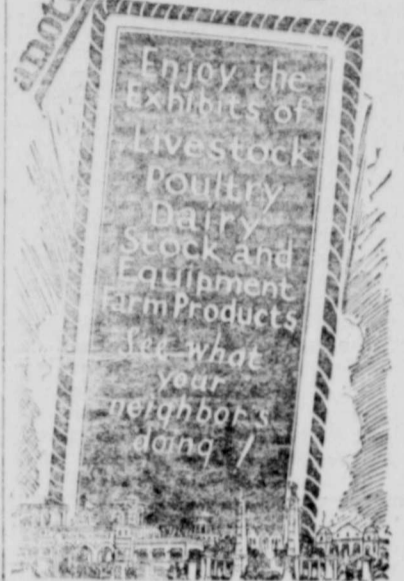 anot
Enjoy the
Exhibits of
Livestock
Poultry
Dairy
Stock and
Equipment
Farm Products
See what
your
neighbor s
doing !